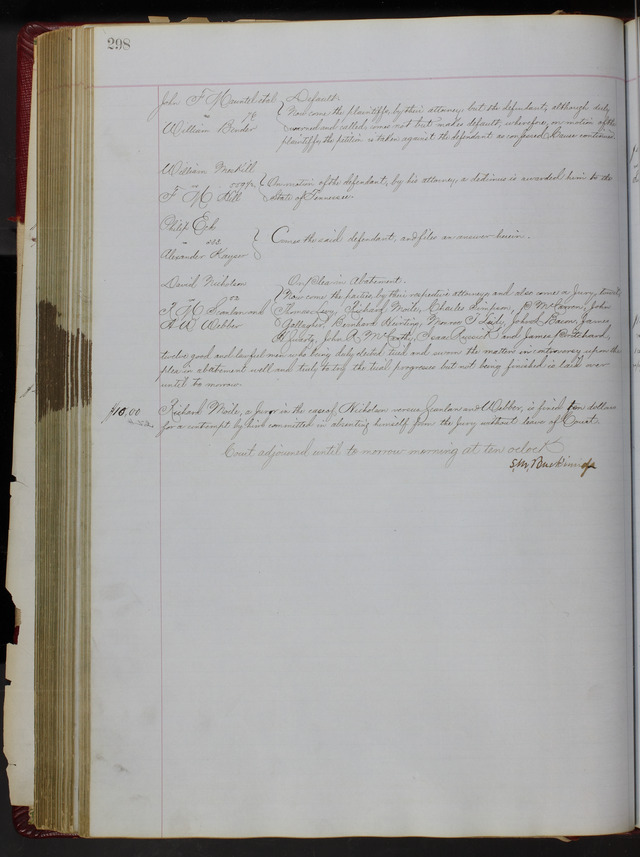 298
John F Defaults
vs 78 Now come the plaintiffs, by their attorney, but the defendant, although duly
William Binder and called, comes not but makes default, wherefore, on motion of the
plaintiffs, the petition is taken against the defendant as confessed & cause continued.
William
vs On motion of the defendant, by his attorney, a dedimus is awarded him to the
F. M. Hill State of Tennessee.
Philip Eck
vs 233 Comes the said defendant, and files an answer herein.
Alexander Kayser
David Nicholson On Plea in Abatement.
vs 02 Now come the parties by their respective attorneys and also comes a Jury, to wit,
and Richard Mode, Charles Simpson, John
A. W. Webber Gallagher, Bernhard John S. James
John A McCarthy, Isaac and James Pritchard,
twelve good and lawful men who being duly elected, tried and sworn the matters in controversy upon the
plea in abatement well and truly to try the trial progresses but not being finished is laid over
until to morrow.
$10.00 Richard Mode, a Juror in the case of Nicholson versus Scanlan and Webber, is fined ten dollars
for a contempt by him committed in absenting himself from the Jury without leave of Court.
Court adjourned until to morrow morning at ten oclock
S. M. Breckinridge